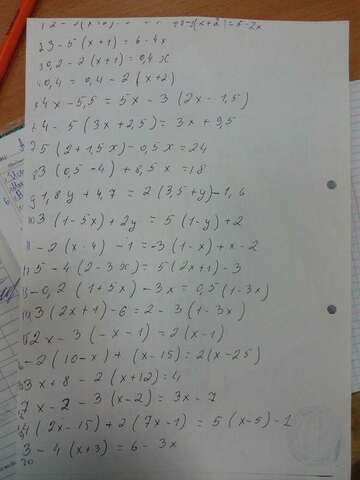 23-5(x+1)=6-4x
3 0,2-2(x+1)=0,4x
4 0,4=0,4-2(x+2)
5 4x-5,5=5x-3(2x-1,5)
4-5(3x+2,5)=3x+9,5
5(2+1,5x)-0,5x=24
8 3(0,5-4)+8,5x=18
9 1,8y+4,7=2(3,5+y)-1,6
10 3(1-5x)+2y=5(1-y)+2
11 -2(x-4)-1=-3(1-x)+x-2
12 5-4(2-3x)=5(2x+1)-3
13 -0,2(1+5x)-3x=0,5(1-3x)
14 3(2x+1)-6=2-3(1-3x)
15 2x-3(-x-1)=2(x-1)
-2(10-x)+(x-15)=2(x-25)
3x+8-2(x+12)=4
7x-2-3(x-2)=3x-7
4(2x-15)+2(7x-1)=5(x-5)-1
3-4(x+3)=6-3x
20